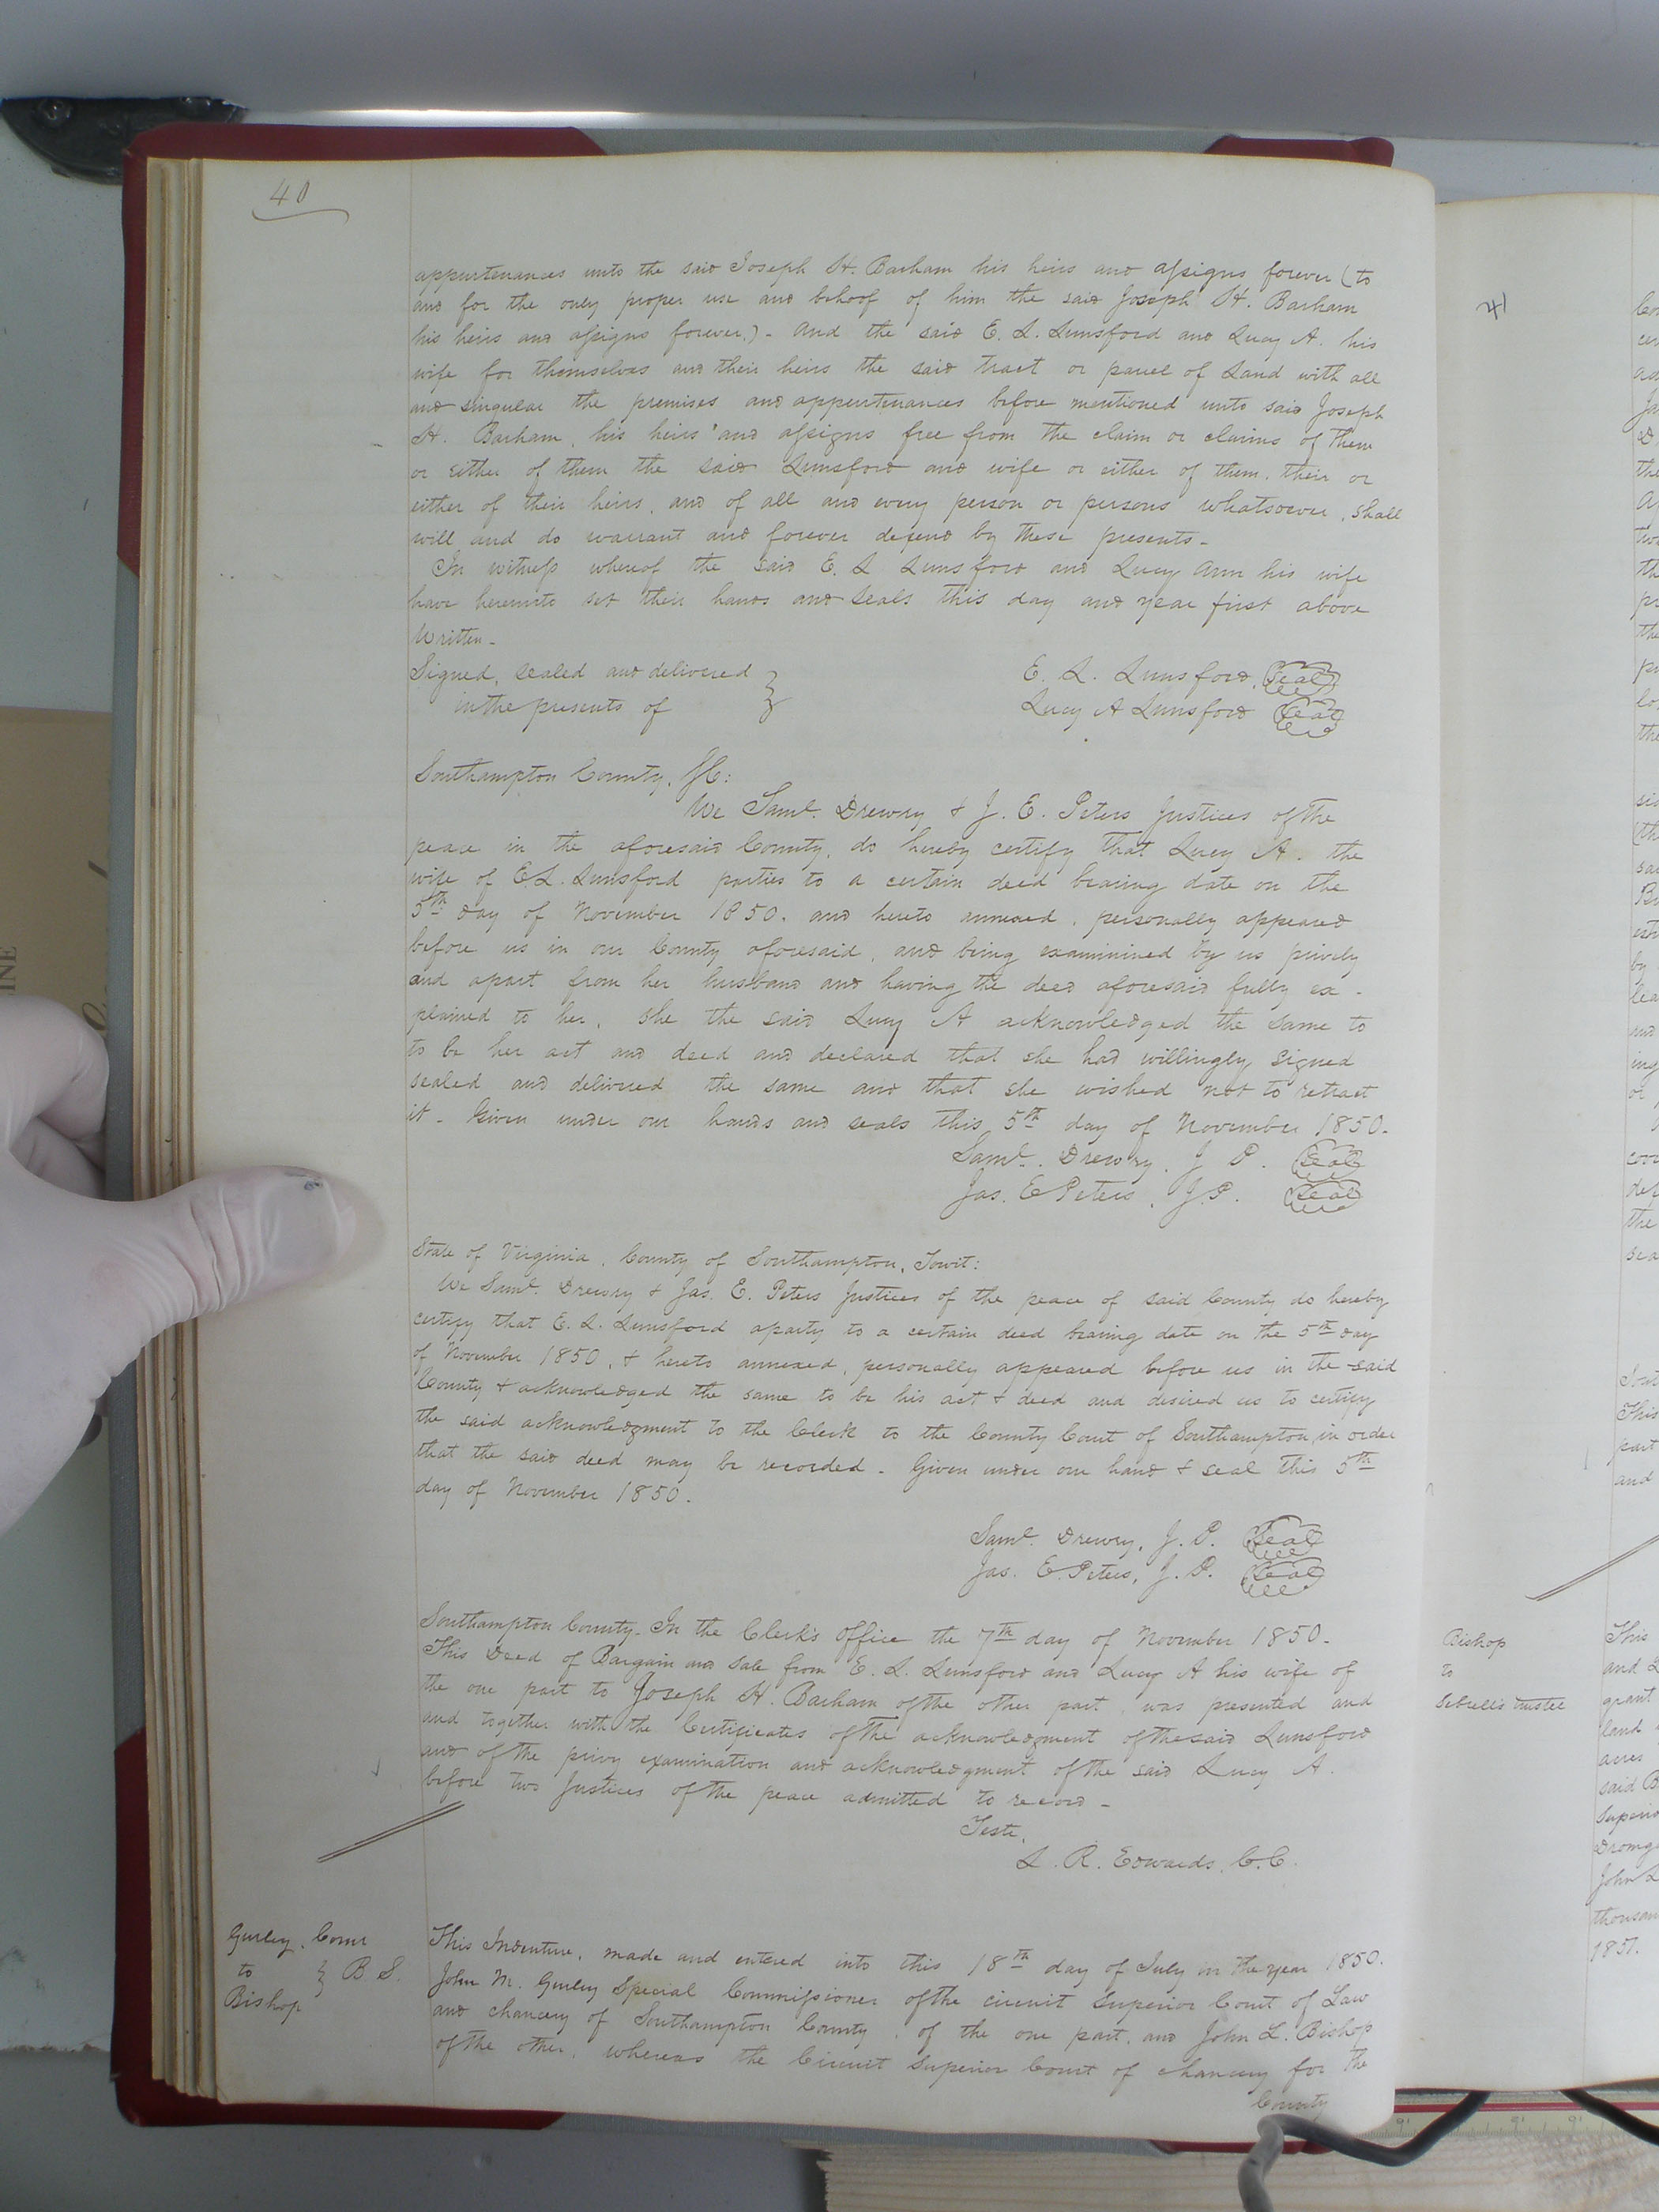 40
appurtenances unto the said Joseph H. Barham his heirs and assigns forever (to
and for the only proper use and behoof of him the said Joseph H. Barham
his heirs and assigns forever.) - And the said E. L. Lunsford and Lucy A. his
wife for themselves and their heirs the said tract or parcel of Land with all
and singular the premises and appurtenances before mentioned unto said Joseph
H. Barham, his heirs and assigns free from the claim or claims of them
or either of them the said Lunsford and wife or either of them, their or
either of their heirs, and of all and every person or persons whatsoever, shall
will and do warrant and forever defend by these presents -
In witness whereof the said E. L Lunsford and Lucy Ann his wife
have hereunto set their hands and seals this day and year first above
Written -
Signed, sealed and delivered
in the presents of
E. L. Lunsford, Seal
Lucy A Lunsford Seal
Southampton County, Sc:
We Saml. Drewry & J. E. Peters Justices of the
peace in the aforesaid County, do hereby certify that Lucy A. the
wife of E L. Lunsford parties to a certain deed bearing date on the
5th day of November 1850. and hereto annexed, personally appeared
before us in our County aforesaid, and being examinined by us privily
and apart from her husband and having the deed aforesaid fully ex-
plained to her, she the said Lucy A acknowledged the same to
to be her act and deed and declared that she had willingly signed
sealed and delivered the same and that she wished not to retract
it - Given under our hands and seals this 5th day of November 1850.
Saml. Drewry, J P. Seal
Jas. E Peters, J.P. Seal
State of Virginia, County of Southampton, Towit:
We Saml. Drewry & Jas. E. Peters Justices of the peace of said County do hereby
certify that E. L. Lunsford a party to a certain deed bearing date on the 5th day
of November 1850, & hereto annexed, personally appeared before us in the said
County & acknowledged the same to be his act & deed and desired us to certify
the said acknowledgment to the Clerk to the County Court of Southampton, in order
that the said deed may be recorded - Given under our hand & seal this 5th
day of November 1850.
Saml. Drewry, J. P. Seal
Jas. E. Peters, J. P. Seal
Southampton County - In the Clerk's Office the 7th day of November 1850 -
This Deed of Bargain and Sale from E. L. Lunsford and Lucy A his wife of
the one part to Joseph H. Barham of the other part, was presented and
and together with the Certificates of the acknowledgment of the said Lunsford
and of the privy examination and acknowledgment of the said Lucy A.
before two Justices of the peace admitted to record -
Teste,
L. R. Edwards, C. C.
Gurley, Comr
to } B S.
Bishop
This Indenture, made and entered into this 18th day of July in the year 1850.
John M. Gurley Special Commissioner of the circuit Superior Court of Law
and Chancery of Southampton County, of the one part, and John L. Bishop
of the other, whereas the Circuit Superior Court of Chancery for the
County
41
Bishop
to
Sebrells trustee
This
and
grant
land
acres
said B
Superio
Dromg
John L
thousan
1851.